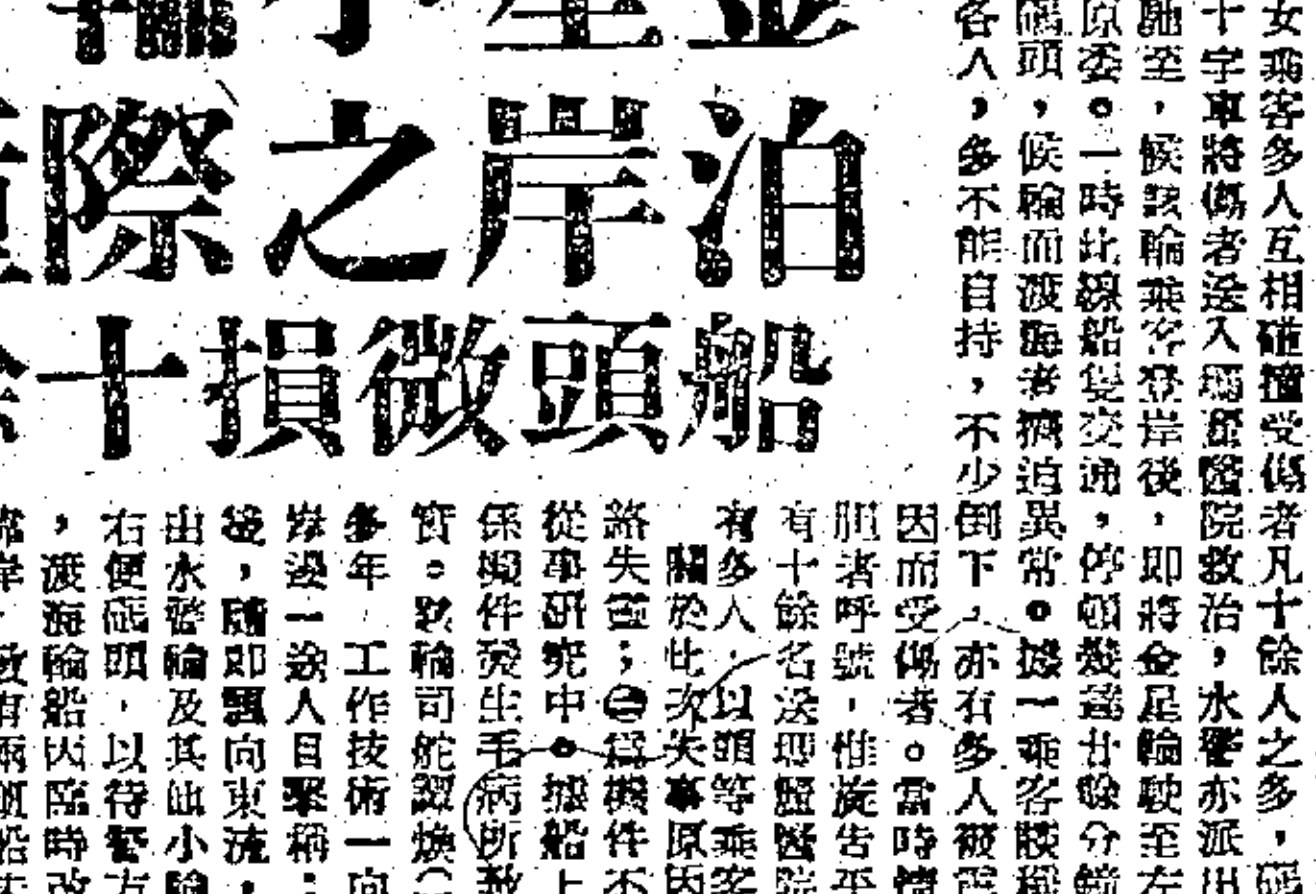 女乘客多人互相碰撞受傷者凡十餘人之多，
十字車將傷者送入瑪麗醫院救治，水警亦派出
馳至，候該輪乘客登岸後，即將金星輪駛至左
原委。一時此線船隻交通，停頓幾達廿餘分鐘
碼頭，候輪而渡海者擠迫異常。據一乘客談稱
各人，多不能自持，不少倒下，亦有多人被
金星小輪
泊岸之際
船頭微損十餘
因而受傷者。當時情
胆者呼號，惟旋告平
有十餘名送瑪麗醫院
有多人，以頭等乘客
關於此次失事原因
絡失靈；㊁為機件不
從事研究中。據船上
係機件發生毛病所致
實。該輪司舵譚煥
多年，工作技術一向
岸邊一途人目擊稱：
後，隨即飄向東流，
出水警輪及其他小輪
右便碼頭，以待警方
，渡海輪船因臨時改